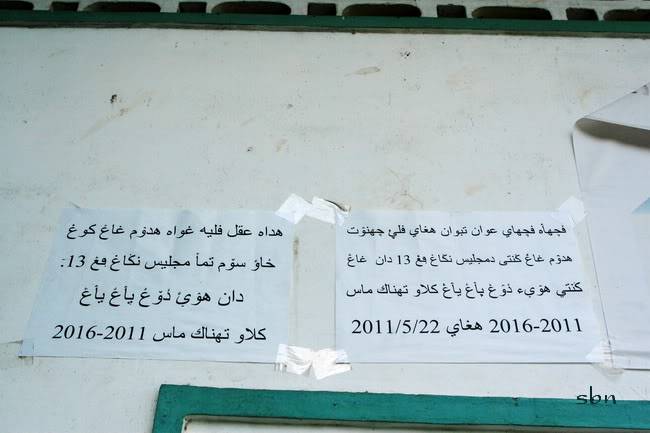 فجهأه فجهاي عوان تبوان هغاي فلئ جهنؤت
هدؤم غاغ كنتى دمجليس نكاغ فغ 13 دان غاغ
كنتي هؤيء دؤغ يأغ يأغ كلاو تهناك ماس
2016-2011 هغاي 2011/5/22
هداه عقل فليه غواه هدؤم غاغ كوغ
خاؤ سؤم تمأ مجليس نكاغ فغ 13:
دان هؤئ دؤغ يأغ يأغ
كلاو تهناك ماس 2011-2016
sbn